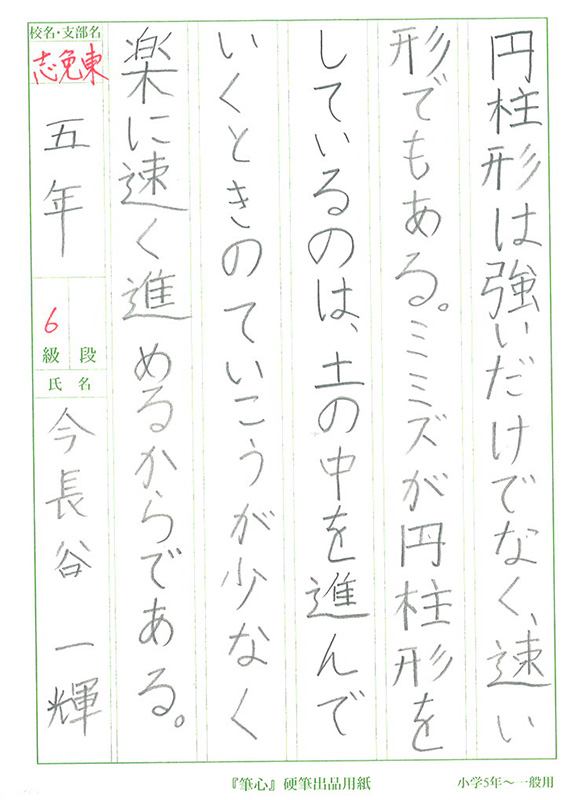 円柱形は強いだけでなく、速い
形でもある。ミミズが円柱形を
しているのは、土の中を進んで
いくときのていこうが少なく
楽に速く進めるからである。
校名・支部名
志免東
五年
6
級 段
氏名
今長谷 一輝
『筆心』硬筆出品用紙
小学5年〜一般用